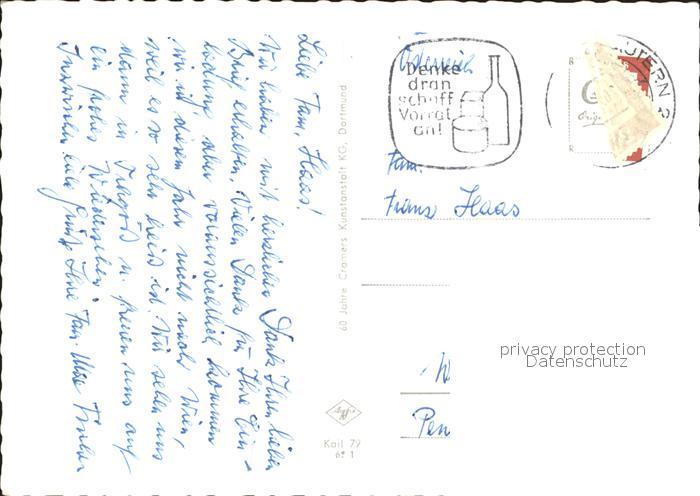 Liebe Fam. Haas!
Wir haben mit herzlichem Dank Ihren lieben
Brief erhalten. Vielen Dank für Ihre Ein-
ladung aber voraussichtlich kommen
wir in diesem Jahr nicht nach Wien,
weil es so sehr heiß ist. Wir sehen uns
dann in u. freuen uns auf
ein frohes Wiedersehen.
Inzwischen liebe Grüße Ihre Fam.
60 Jahre Cramers Kunstanstalt KG, Dortmund
Kail 79
6° 1
Österreich
Denke
dran
schaff
Vorrat
an!
UTERN 2
Fam.
Franz Haas
W
Pen
privacy protection
Datenschutz